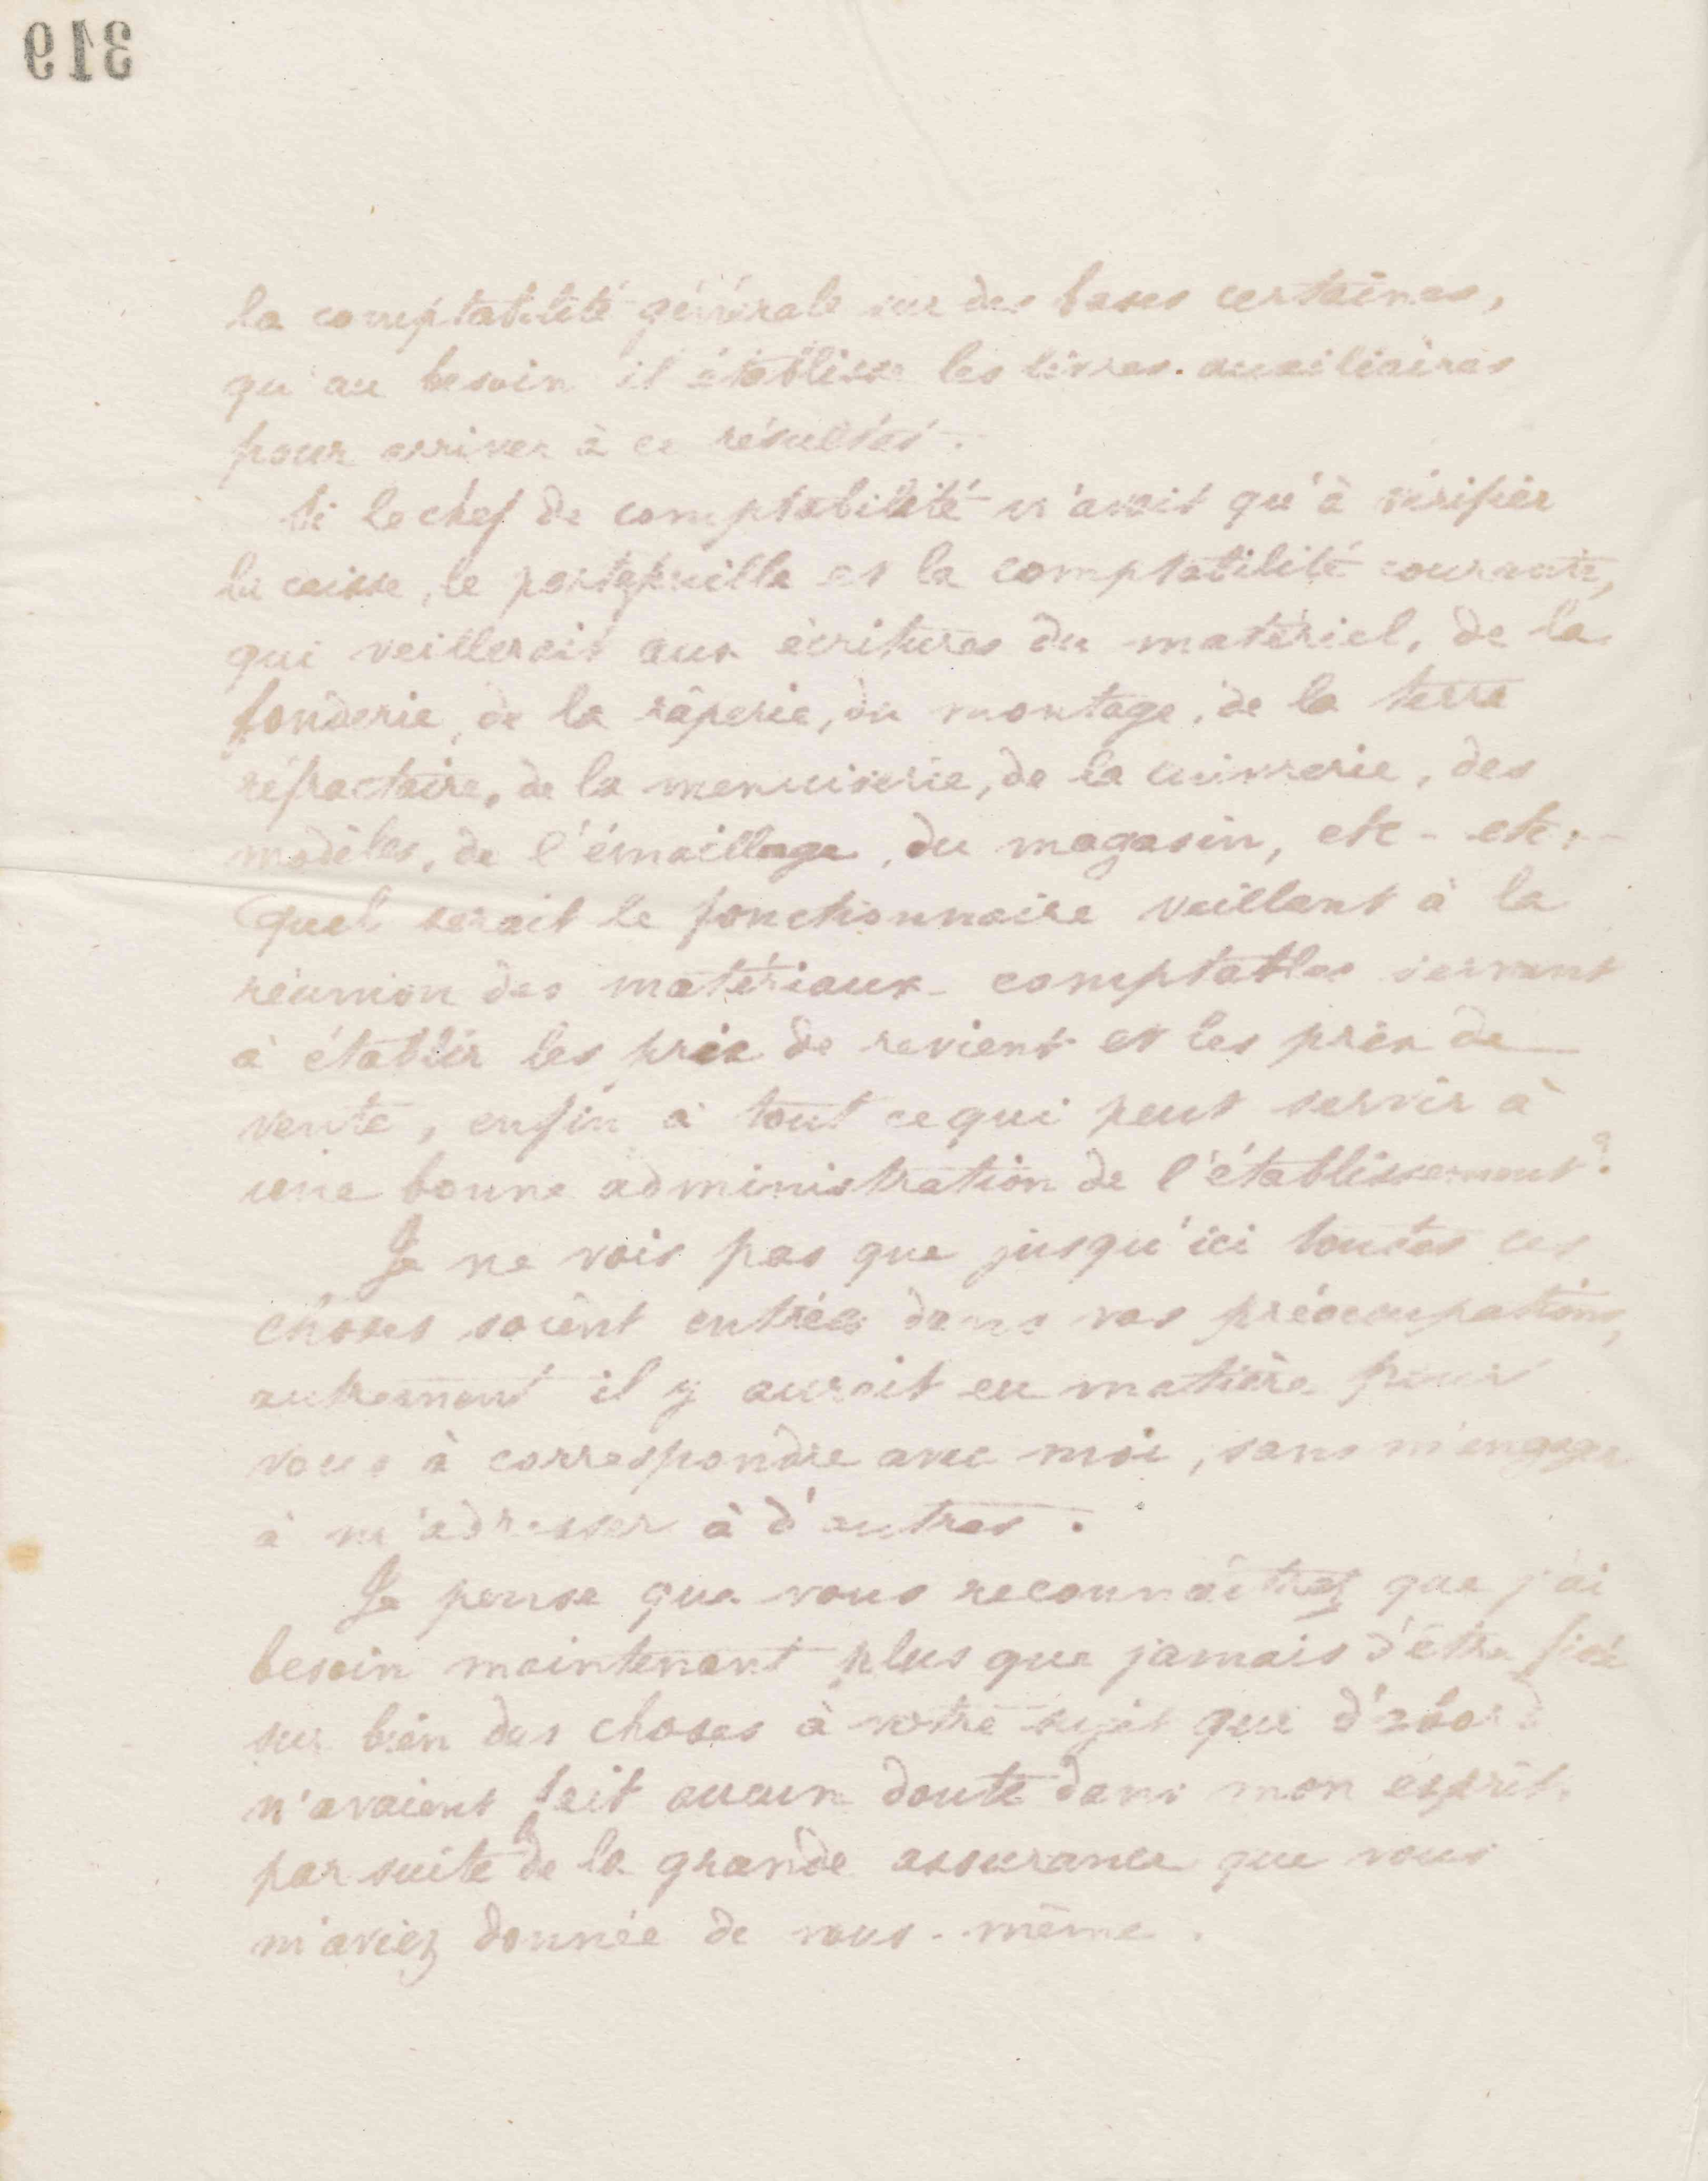 319
la comptabilité générale sur des bases certaines,
qu'au besoin il établisse les livres auxiliaires
pour arriver à ce résultat.
Si le chef de comptabilité n'avait qu'à vérifier
la caisse, le portefeuille et la comptabilité courante,
qui veillerait aux écritures du matériel, de la
fonderie, de la râperie, du montage, de la terre
réfractaire, de la menuiserie, de la cuivrerie, des
modèles, de l'émaillage, du magasin, etc - etc -
Quel serait le fonctionnaire veillant à la
réunion des matériaux comptables servant
à établir les prix de revient et les prix de
vente, enfin à tout ce qui peut servir à
une bonne administration de l'établissement?
Je ne vois pas que jusqu'ici toutes ces
choses soient entrées dans vos préoccupations,
autrement il y aurait eu matière pour
vous à correspondre avec moi, sans m'engager
à m'adresser à d'autres.
Je pense que vous reconnaîtrez que j'ai
besoin maintenant plus que jamais d'être fixé
sur bien des choses à votre sujet qui d'abord
n'avaient fait aucun doute dans mon esprit
par suite de la grande assurance que vous
m'aviez donnée de vous-même.